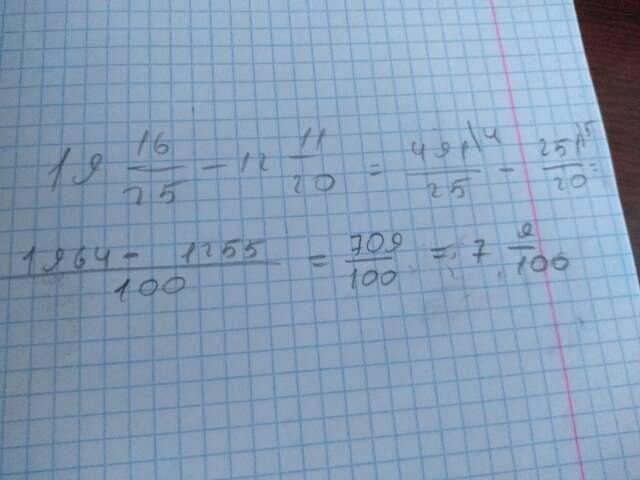 19 16/25 - 12 11/20 = 491\4/25 - 251\5/20 =
1964 - 1255/100 = 709/100 = 7 9/100